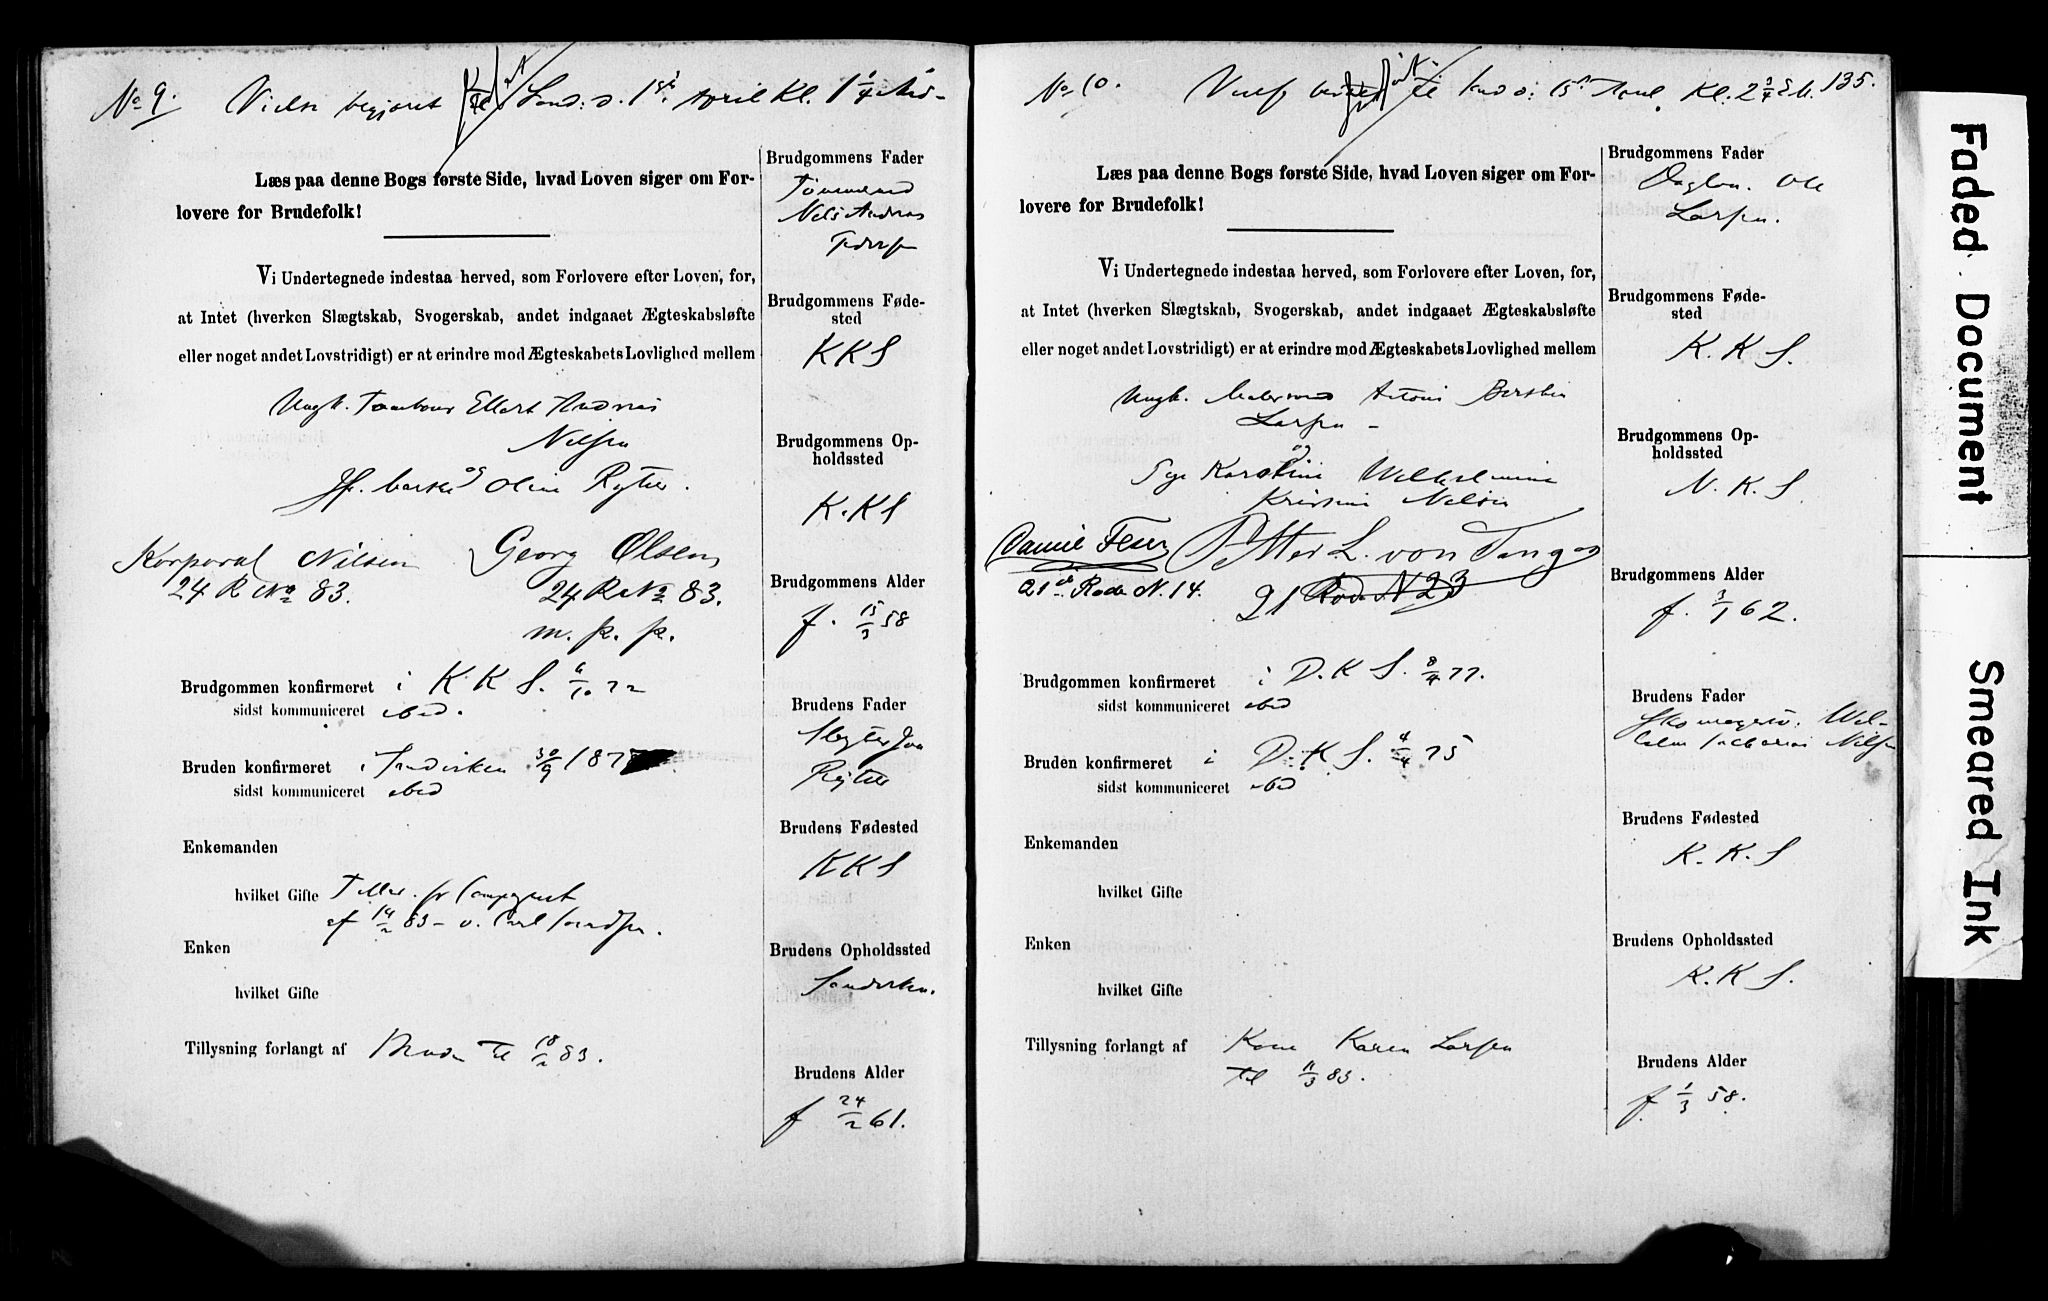 No 9. Vielse begjæret til Sønd: d. 1ste April Kl. 1 1/4
Læs paa denne Bogs første Side, hvad Loven siger om For-
lovere for Brudefolk!
Vi Undertegnede indestaa herved, som Forlovere efter Loven, for,
at Intet (hverken Slægtskab, Svogerskab, andet indgaaet Ægteskabsløfte
eller noget andet Lovstridigt) er at erindre mod Ægteskabets Lovlighed mellem
Ungk. Tambour Ellert Andreas
Nilsen
og
Oline Rytter.
Korporal Nilsen Georg Olsen
24 R No 83. 24 R No 83.
m. p. p.
Brudgommen konfirmeret i K K S. 6/10 72
sidst kommuniceret ibid.
Bruden konfirmeret i Sandviken 30/9 187
sidst kommuniceret ibid
Enkemanden
hvilket Gifte Tillad. fr Compagniet
af 14/2 83 - v. Carl
Enken
hvilket Gifte
Tillysning forlangt af Bruden til 18/2 83.
Brudgommens Fader
Tømmermd
Nils Andreas
Pedersen
Brudgommens Føde-
sted
K K S
Brudgommens Op-
holdssted
K. K S
Brudgommens Alder
f. 15/3 58
Brudens Fader
Rytter
Brudens Fødested
K K S
Brudens Opholdssted
Sandviken.
Brudens Alder
f 24/2 61.
No 10. Vielse til Sønd: 15de April. Kl. 2 3/4 135.
Læs paa denne Bogs første Side, hvad Loven siger om For-
lovere for Brudefolk!
Vi Undertegnede indestaa herved, som Forlovere efter Loven, for,
at Intet (hverken Slægtskab, Svogerskab, andet indgaaet Ægteskabsløfte
eller noget andet Lovstridigt) er at erindre mod Ægteskabets Lovlighed mellem
Ungk. Malersvend Antoni
Larsen
og
Pige Karoline Wilhelmine
Kristine Nilsen
Daniel Petter L. von Tangen
21de Rode N. 14. 21 Rode N 23
Brudgommen konfirmeret i D. K S. 8/4 77.
sidst kommuniceret ibid
Bruden konfirmeret i D. K S. 4/4 75
sidst kommuniceret ibid
Enkemanden
hvilket Gifte
Enken
hvilket Gifte
Tillysning forlangt af Kone Karen Larsen
til 11/3 83.
Brudgommens Fader
Dagløn. Ole
Larsen.
Brudgommens Føde-
sted
K. K S.
Brudgommens Op-
holdssted
N. K. S
Brudgommens Alder
f. 3/1 62.
Brudens Fader
Skomagersv. Wil-
helm Zacharias Nilsen
Brudens Fødested
K. K. S
Brudens Opholdssted
K. K S.
Brudens Alder
f 1/3 58.
Faded Document
Smeared Ink